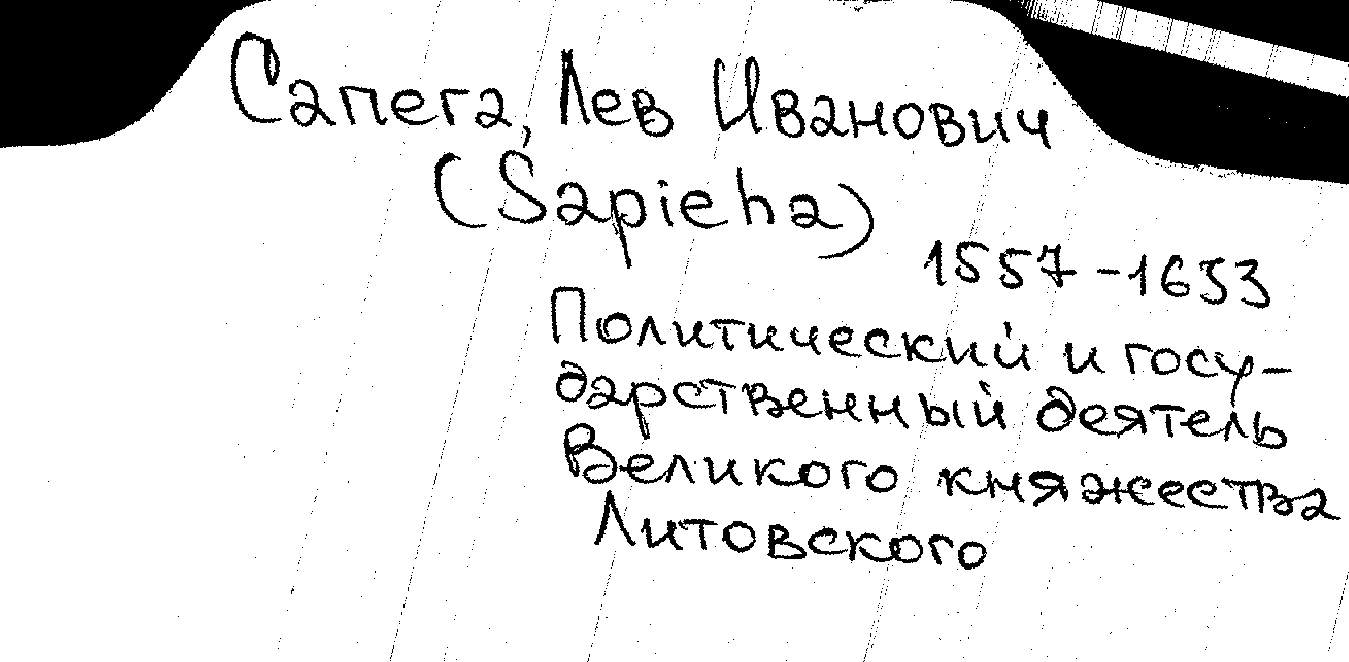 Сапега, Лев Иванович
(Sapieha)
1557-1653
Политический и госу-
дарственный деятель
Великого княжества
Литовского